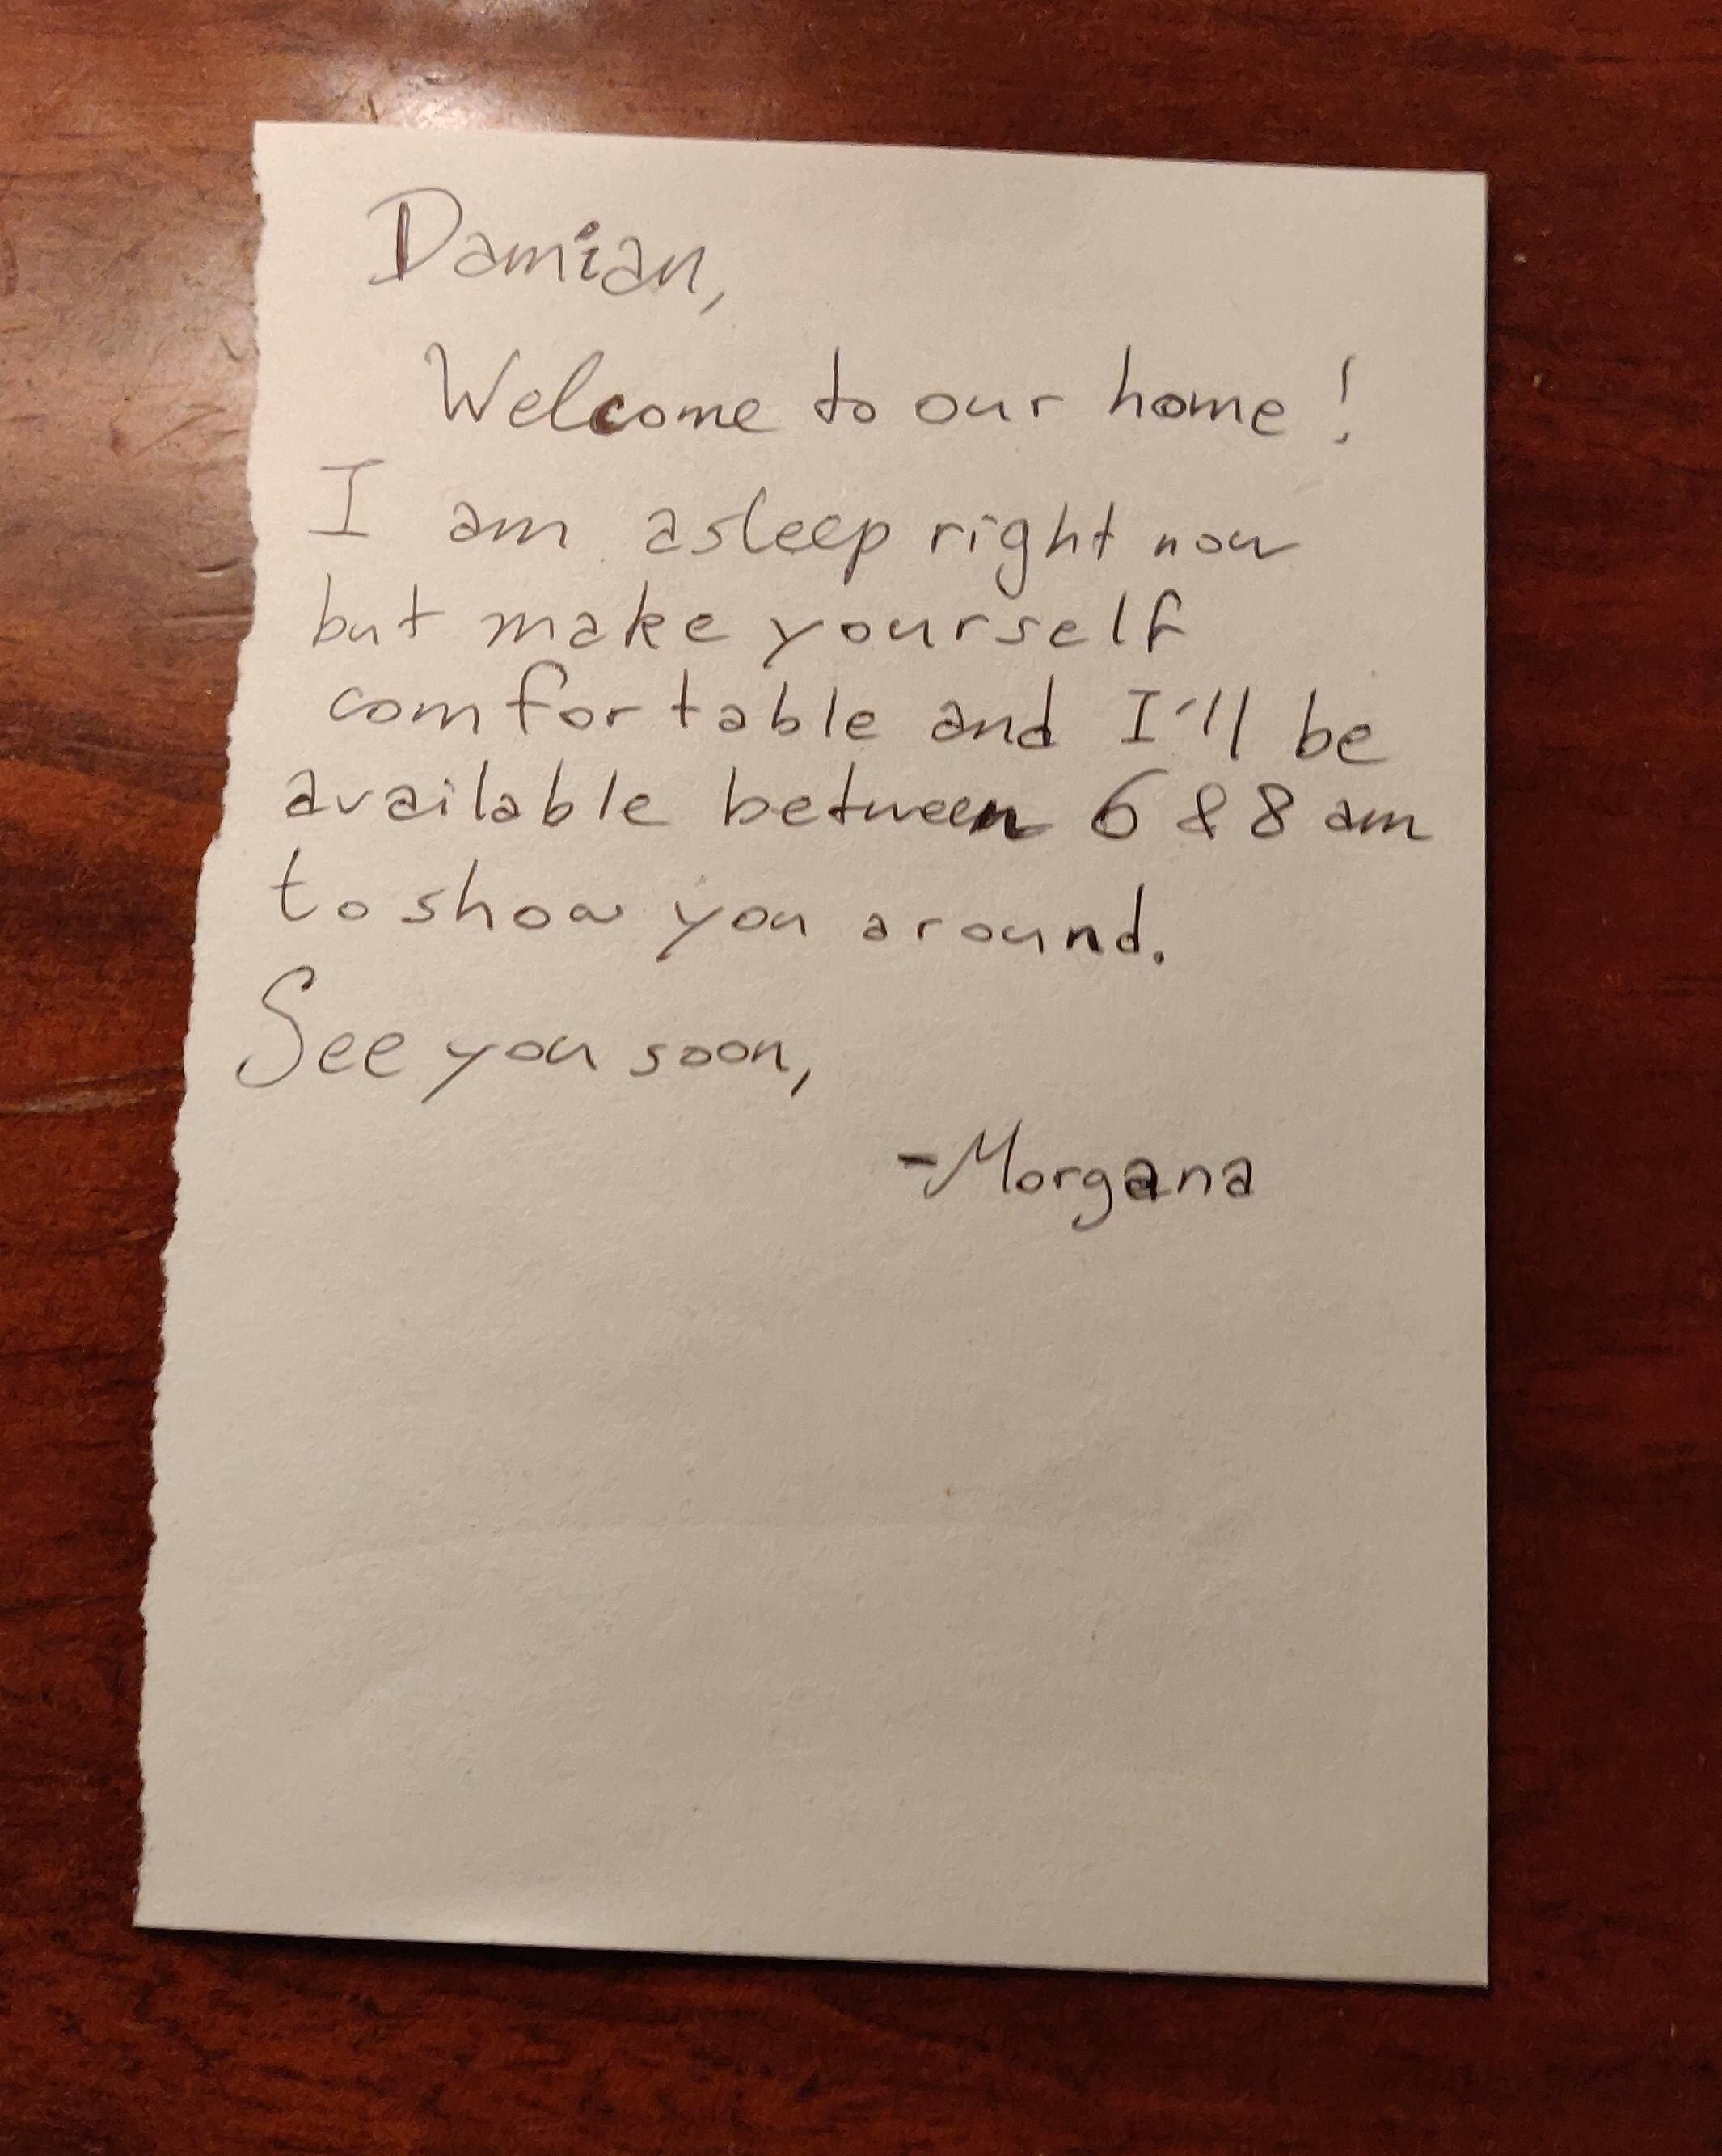 Damian,
Welcome to our home!
I am asleep right now
but make yourself
comfortable and I'll be
available between 6 & 8 am
to show you around.
See you soon,
-Morgana